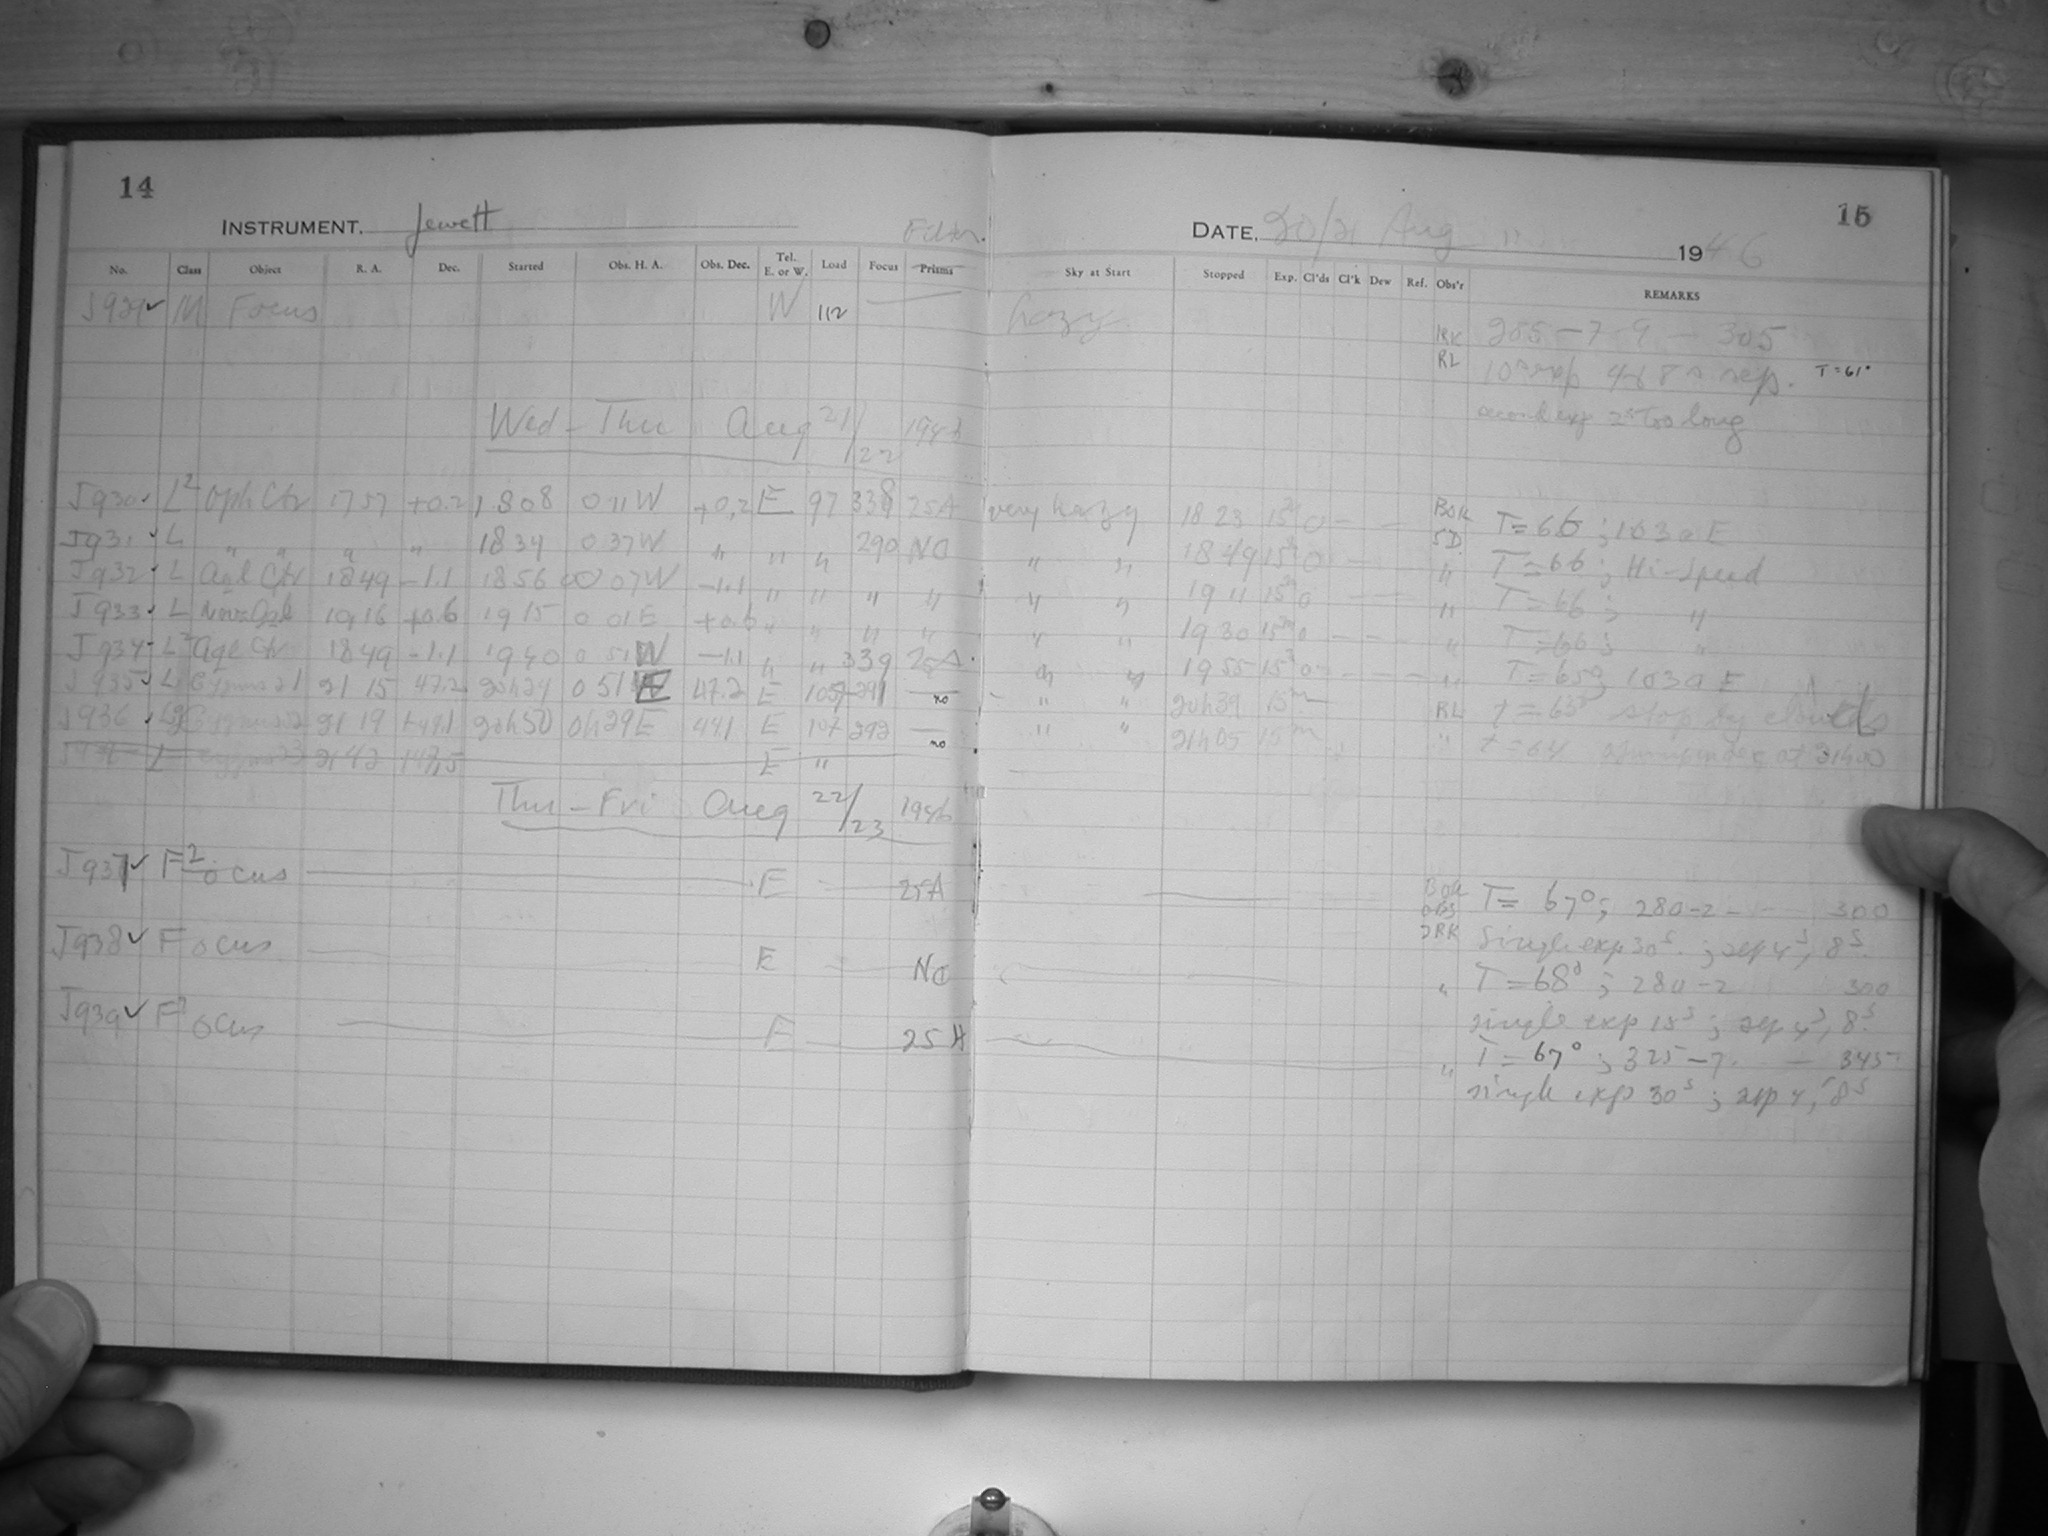 14
INSTRUMENT. Jewett
Filter.
DATE. 20/21 Aug 1946
15
No. Class Object R. A. Dec. Started Obs. H. A. Obs. Dec. Tel. E. or W. Load Focus Prisms Sky at Start Stopped Exp. Cl'ds Cl'k Dew Ref. Obs'r REMARKS
M Focus W 112 hazy RK 285-7-9 - 305
RL 10 exp T=61°
2s Too long
Wed-Thu Aug 21/22 1946
J930 L2 Oph Ctr 1757 +0.2 1808 0 11 W +0.2 E 97 338 25A very hazy 1823 15m 0 - - BOK T=66; 103aE
J931 L " " " " 1834 0 37 W " " " 290 NO " " 1849 15m 0 - - SD. T=66; Hi-Speed
J932 L Aql Ctr 1849 -1.1 1856 0 07 W -1.1 " " " " " " 1911 15m 0 - - " T=66; "
J933 L Nova Oph 1916 +0.6 1915 0 01 E +0.6 " " " " " " 1930 15m 0 - - " T=66; "
J934 L2 Aql Ctr 1849 -1.1 1940 0 51 W -1.1 " " 339 25A " " 1955 15m 0 - - " T=65°; 103aE
J935 L Cygnus 21 21 15 47.2 20h24 0 51 E 47.2 E 107 291 no " " 20h39 15m RL T=65° stop by clouds
J936 Cygnus 22 21 19 +49.1 20h50 0h29E 49.1 E 107 292 no " " 21h05 15m " t=64 at 21h00
J936 L Cygnus 23 21 42 E "
Thu-Fri Aug 22/23 1946
J937 F2ocus E 25A BOK T= 67°; 280-2 - - 300
DRK Single exp 30s; sep 4s, 8s.
J938 Focus E NO " T=68°; 280-2 300
single exp 15s; sep 4s, 8s.
J939 Focus E 25A " T=67°; 325-7 - 345
single exp 30s; sep 4, 8s